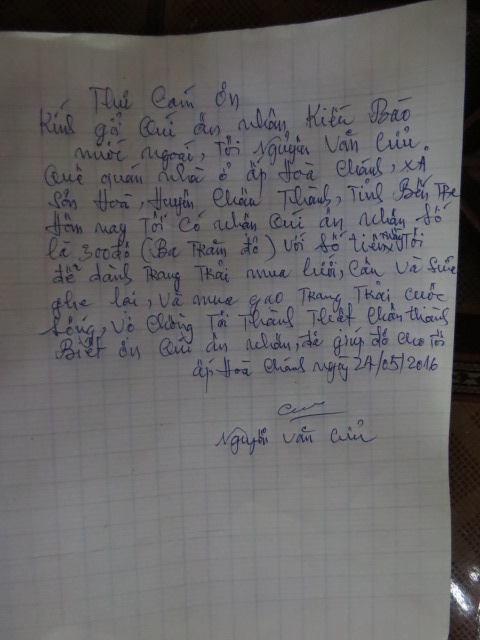 Thư Cám ơn
Kính gởi Quí ân nhân, Kiều Bào
nước ngoài, Tôi Nguyễn Văn Cửu
Quê quán nhà ở ấp Hoà Chánh, xã
Sơn Hoà, Huyện Châu Thành, Tỉnh Bến Tre
Hôm nay Tôi có nhận Quí ân nhân số
là 300đô (Ba Trăm đô) với số tiền Tôi
để dành Trang Trải mua lưới, Cần và Sửa
ghe lại, và mua gạo Trang Trải cuộc
sống, Vợ Chồng Tôi Thành Thiết Chân thành
Biết ơn Quí ân nhân, đã giúp đỡ cho Tôi
ấp Hoà Chánh ngày 24/05/2016
Nguyễn Văn Cửu